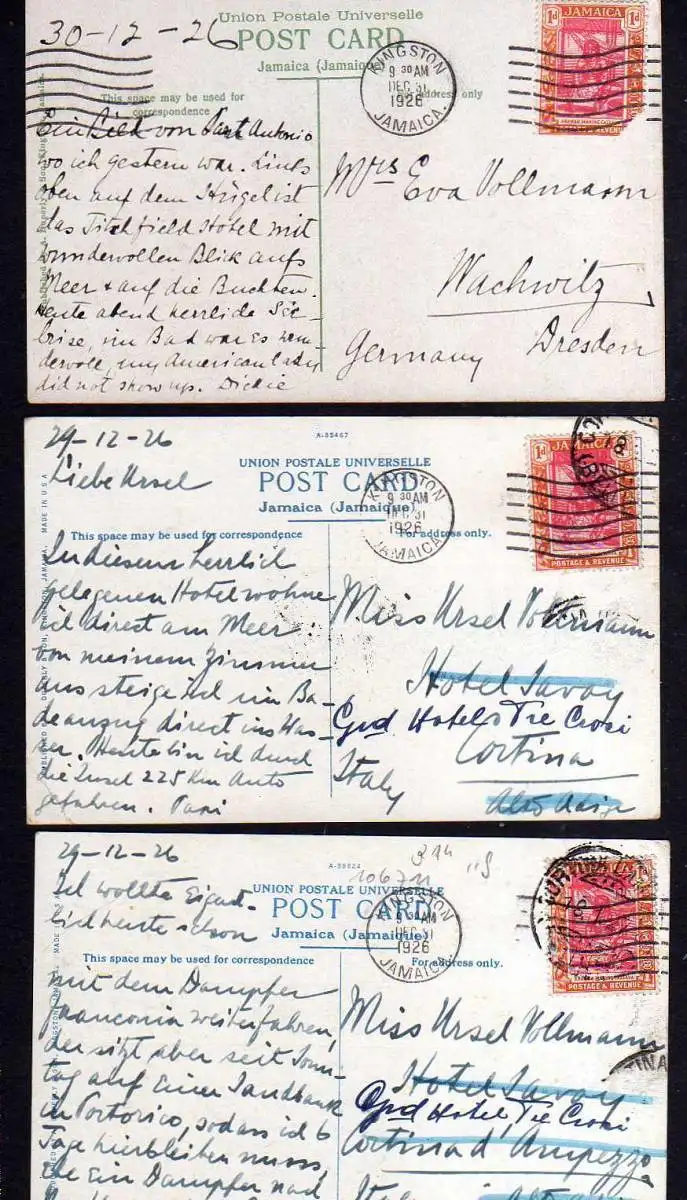 30-12-26
Union Postale Universelle
POST CARD
Jamaica (Jamaique)
This space may be used for
correspondence
For address only.
KINGSTON
9 30 AM
DEC 31
1926
JAMAICA.
1d JAMAICA 1d
& REVENUE
Ein Bild von Port Antonio
wo ich gestern war. Links
oben auf dem Hügel ist
das Titchfield Hotel mit
wundervollen Blick aufs
Meer + auf die Buchten.
Heute abend herrliche See-
brise, im Bad war es wun-
dervoll, my American lady
did not show up. Dickie
Mrs Eva Vollmann
Wachwitz
Dresden
Germany
29-12-26
A-35467
Liebe Ursel
UNION POSTALE UNIVERSELLE
POST CARD
Jamaica (Jamaique)
This space may be used for correspondence
For address only.
KINGSTON
9 30 AM
DEC 31
1926
JAMAICA
1d JAMAICA
POSTAGE & REVENUE
MADE IN U.S.A.
In diesem herrlich
gelegenen Hotel wohne
ich direct am Meer.
Von meinem Zimmer
aus steige ich im Ba-
deanzug direct ins Was-
ser. Heute bin ich durch
die Insel 225 Km Auto
gefahren. Papi
Miss Ursel Vollmann
Hotel Savoy
Grd Hotel Tre Croci
Cortina
Italy
Alto Adige
29-12-26
314
10671
Ich wollte Eigent-
lich heute schon
UNION POSTALE UNIVERSELLE
POST CARD
Jamaica (Jamaique)
This space may be used for correspondence
For address only.
KINGSTON
9 30 AM
DEC 31
1926
JAMAICA
POSTAGE & REVENUE
mit dem Dampfer
Franconia weiterfahren,
der sitzt aber seit Sonn-
tag auf einer Sandbank
in Portorico, sodass ich 6
Tage hierbleiben muss,
ehe ein Dampfer nach
Miss Ursel Vollmann
Hotel Savoy
Grd Hotel, Tre Croci
Cortina d'Ampezzo
Italy